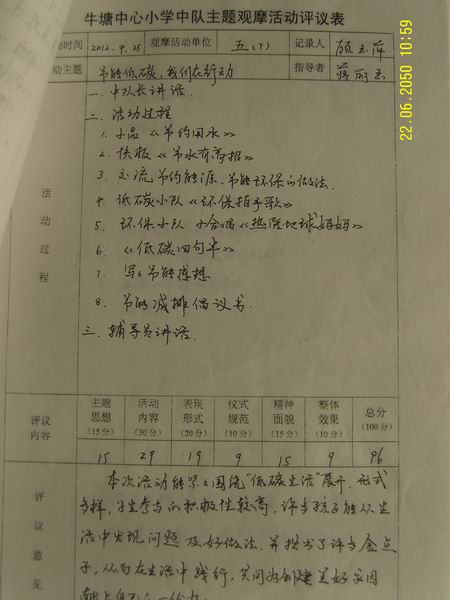 牛塘中心小学中队主题观摩活动评议表
动时间 2012.4.25 观摩活动单位 五(7) 记录人 顾玉萍
动主题 节能低碳，我们在行动 指导者 蒋丽玉
一、中队长讲话
二、活动过程
1. 小品《节约用水》
2. 快板《节水有高招》
3. 交流节约能源、节能环保的做法.
4. 低碳小队《环保拍手歌》
5. 环保小队 小合唱《热爱地球妈妈》
6. 《低碳四句半》
7. 写写节能感想
8. 节能减排倡议书.
三、辅导员讲话.
活动过程
评议内容
主题思想(15分) 活动内容(30分) 表现形式(20分) 仪式规范(10分) 精神面貌(15分) 整体效果(10分) 总分(100分)
15 29 19 9 15 9 96
评议意见
本次活动能紧紧围绕"低碳生活"展开，形式
多样，学生参与的积极性较高，许多孩子能从生
活中发现问题及好做法，并提出了许多金点
子，从而在生活中践行，共同为创建美好家园
献上自己一份力
22.06.2050 10:59